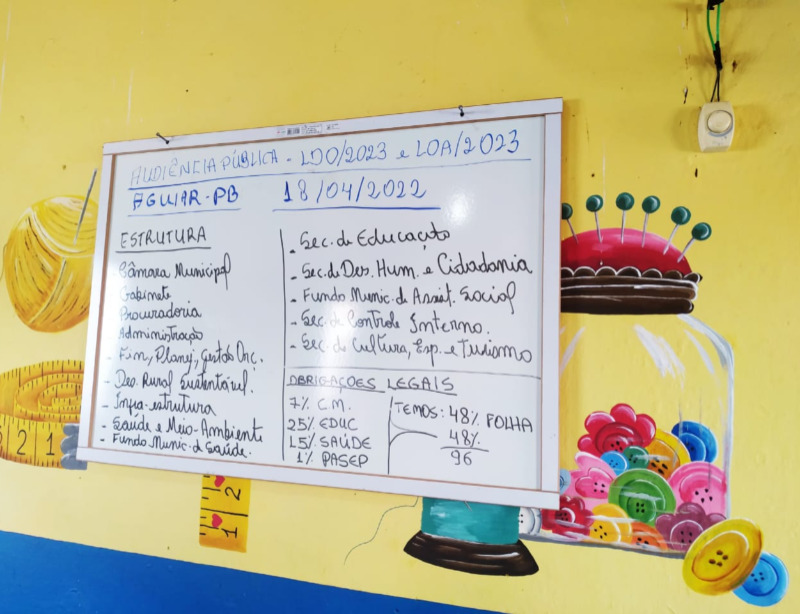 AUDIÊNCIA PÚBLICA - LDO/2023 e LOA/2023
AGUIAR-PB 18/04/2022
ESTRUTURA
Câmara Municipal
Gabinete
Procuradoria
Administração
- Fin, Planej, Gestão Orç.
- Des. Rural Sustentável.
- Infra-estrutura
- Saúde e Meio-Ambiente
- Fundo Munic. d Saúde.
- Sec. de Educação
- Sec. de Des. Hum. e Cidadania
- Fundo Munic. de Assist. Social
- Sec. de Controle Interno.
- Sec. de Cultura, Esp. e Turismo
OBRIGAÇÕES LEGAIS
7% C.M.
25% EDUC
15% SAÚDE
1% PASEP
TEMOS: 48% FOLHA
48%
96
2 1
2
1